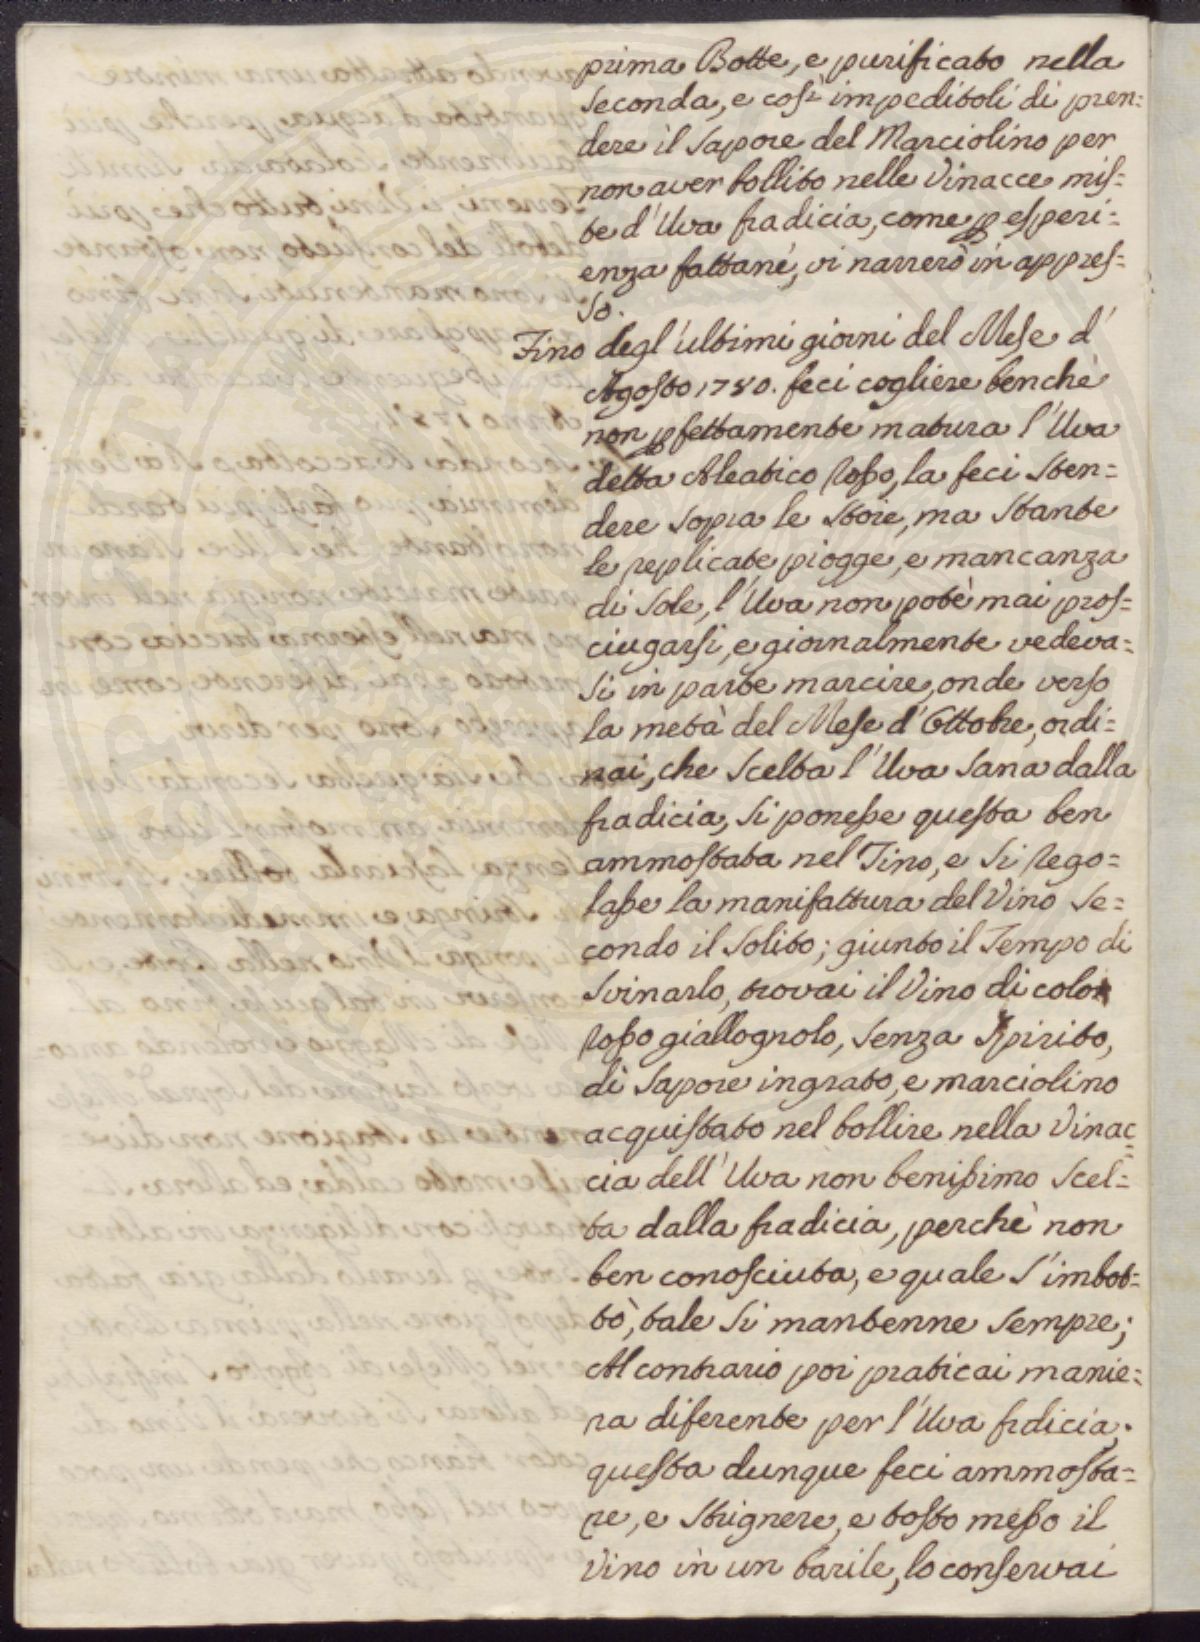 prima Botte, e purificato nella
seconda, e così impeditoli di pren=
dere il Sapore del Marciolino per
non aver bollito nelle Vinacce mis=
te d'Uva fradicia, come p esperi=
enza fattane, vi narrerò in appres=
so.
Fino degl'ultimi giorni del Mese d'
Agosto 1780. feci cogliere benchè
non pfettamente matura l'Uva
detta Aleatico Rosso, la feci sten=
dere sopra le Store, ma stante
le replicate piogge, e mancanza
di Sole, l'Uva non potè mai pros=
ciugarsi, e giornalmente vedeva=
si in parte marcire, onde verso
la metà del Mese d'Ottobre, ordi=
nai, che scelta l'Uva sana dalla
fradicia, si ponesse questa ben
ammostata nel Tino, e si rego=
lasse la manifattura del Vino se=
condo il solito; giunto il Tempo di
svinarlo, trovai il Vino di color
rosso giallognolo, senza Spirito,
di sapore ingrato, e marciolino
acquistato nel bollire nella Vinac=
cia dell'Uva non benissimo scel=
ta dalla fradicia, perchè non
ben conosciuta, e quale s'imbot=
tò, tale si mantenne sempre;
Al contrario poi praticai manie=
ra diferente per l'Uva fradicia;
questa dunque feci ammosta=
re, e strignere, e tosto messo il
Vino in un barile, lo conservai